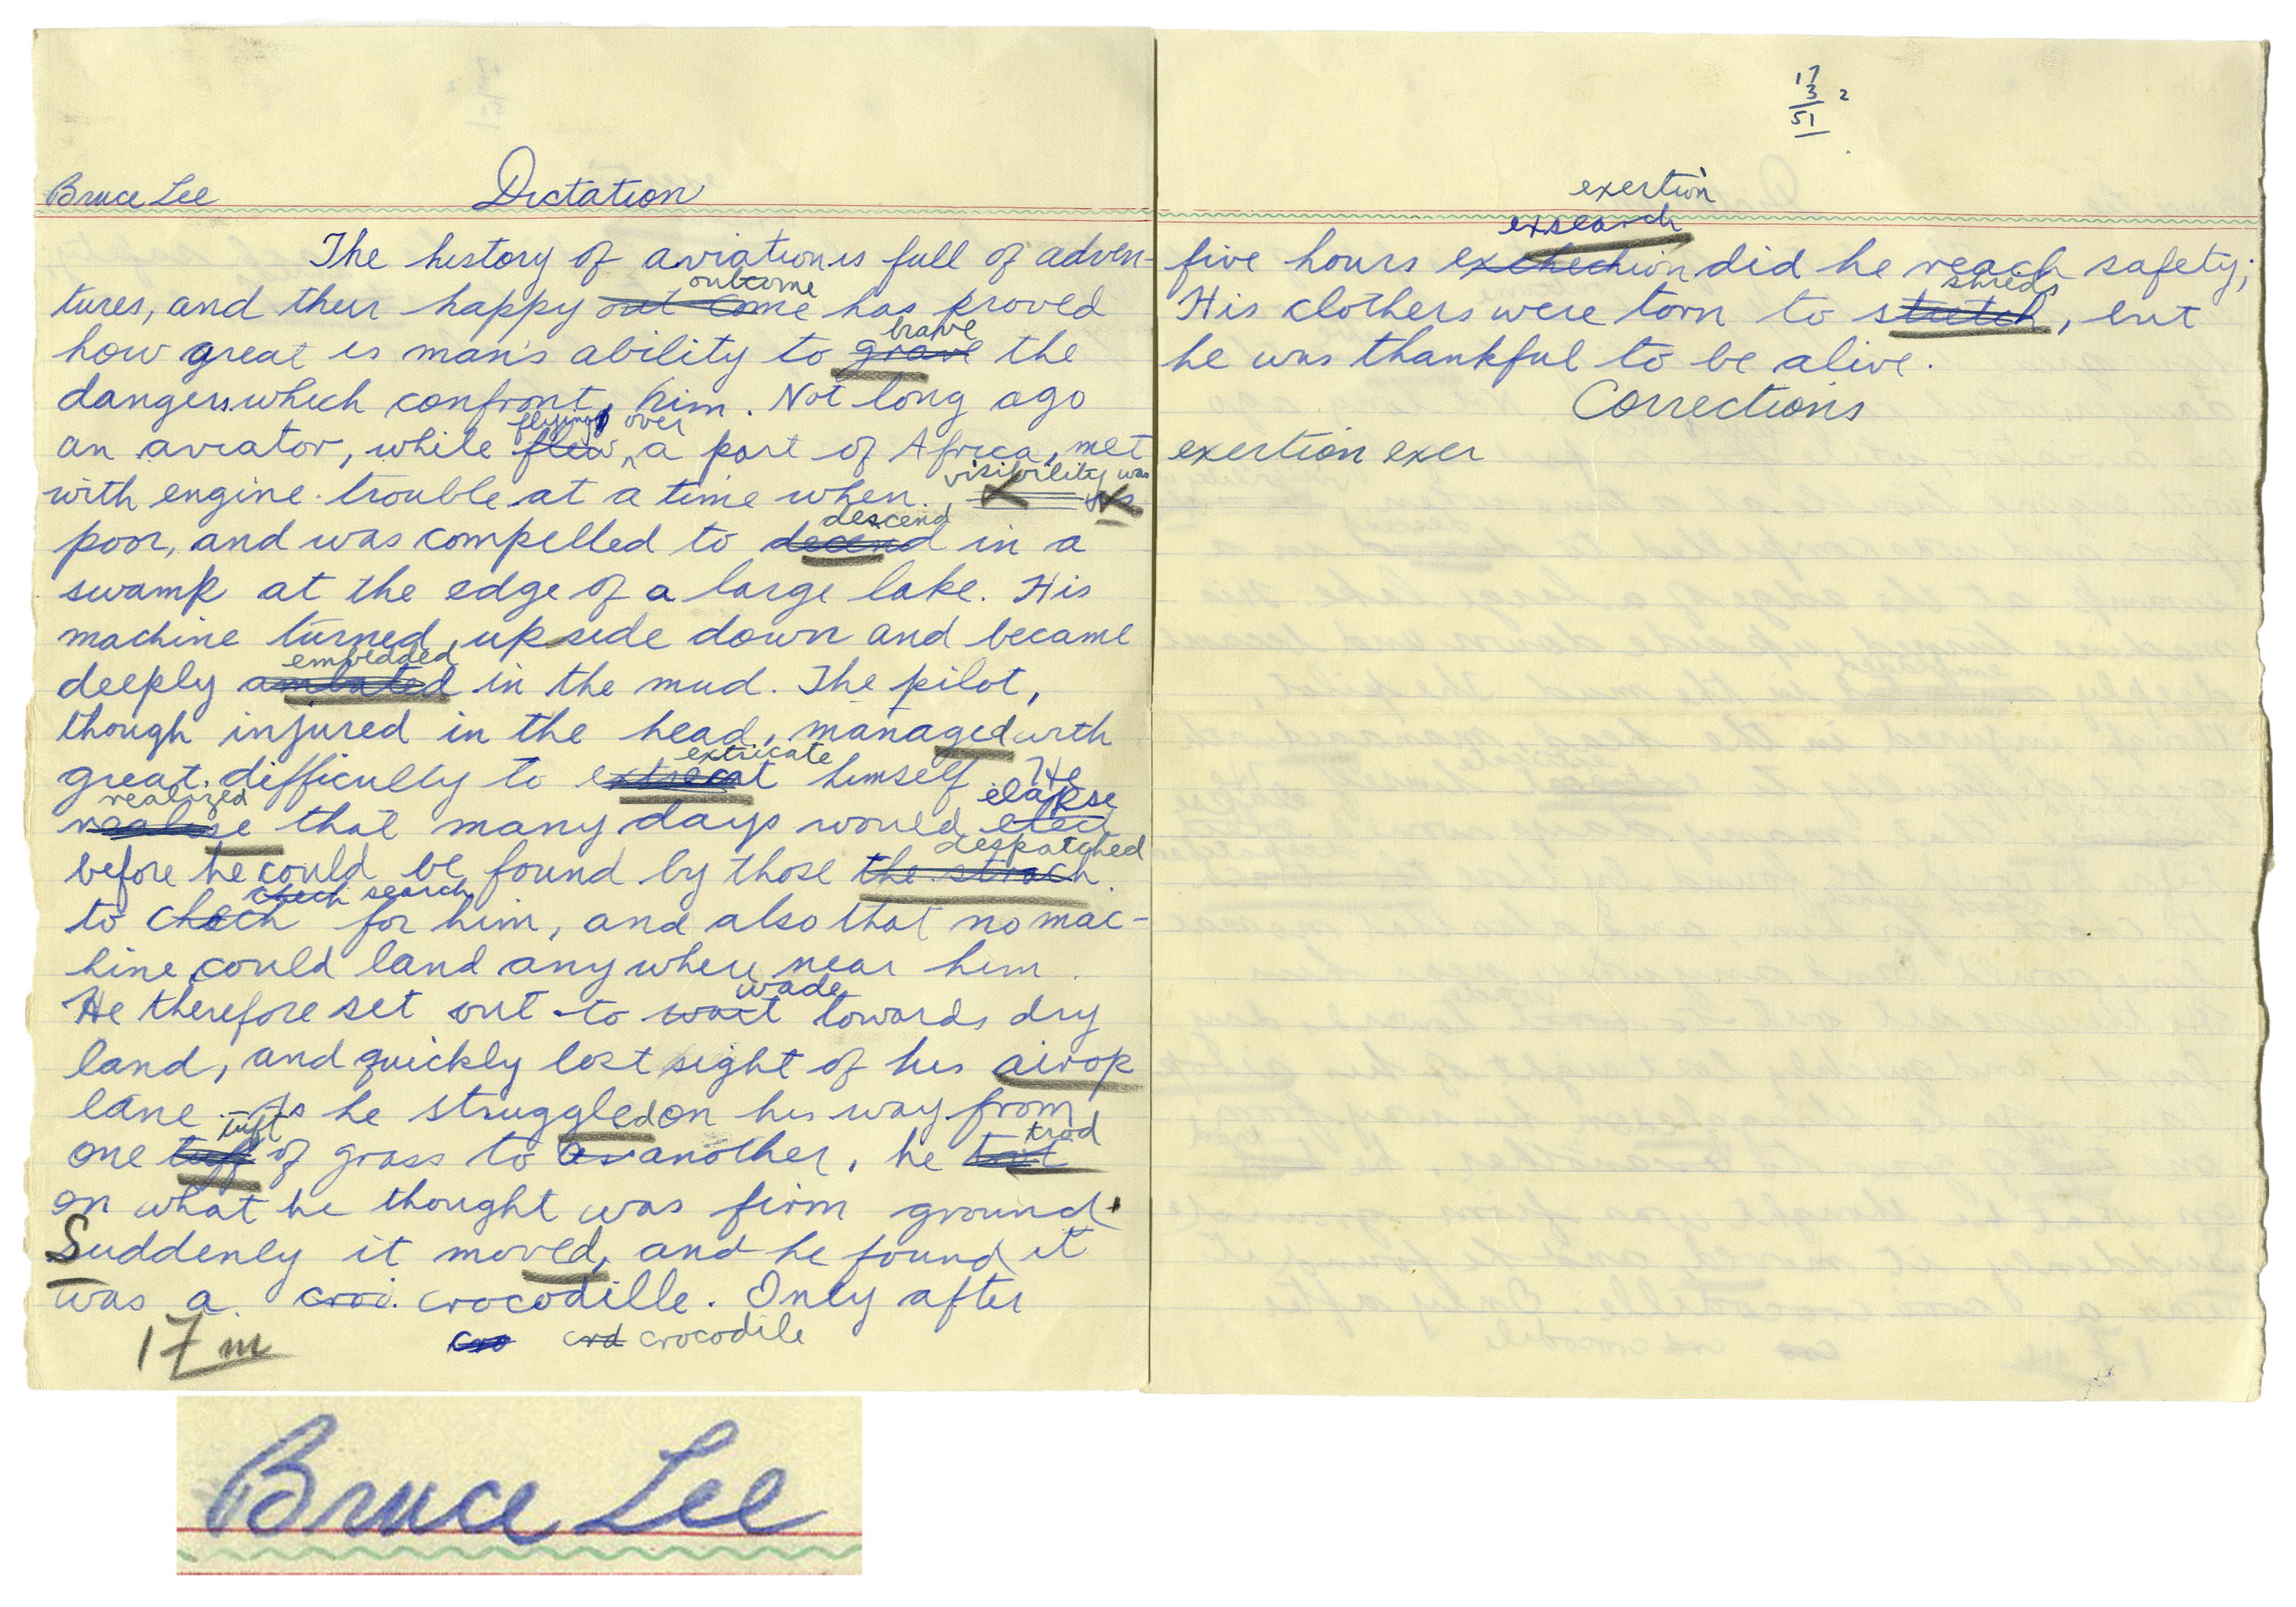 Bruce Lee Dictation
The history of aviation is full of adven-
outcome
tures, and their happy out come has proved
brave
how great is man's ability to grave the
dangers which confront him. Not long ago
flying over
an aviator, while flew a part of Africa, met
visibility was
with engine trouble at a time when
descend
poor, and was compelled to decend in a
swamp at the edge of a large lake. His
machine turned upside down and became
embedded
deeply ambated in the mud. The pilot,
though injured in the head, managed with
extricate
great difficulty to extrecat himself. He
realized elapse
realise that many days would
despatched
before he could be found by those the strach
check search
to check for him, and also that no mac-
hine could land anywhere near him
wade
He therefore set out to wait towards dry
land, and quickly lost sight of his airop
lane. As he struggled on his way from
tuft trod
one tuff of grass to another, he
on what he thought was firm ground.
Suddenly it moved, and he found it
was a croi. crocodille. Only after
cro crd crocodile
17 m
17
3 2
51
exertion
exsearch
five hours did he reach safety;
shreds
His clothers were torn to stretch, but
he was thankful to be alive.
Corrections
exertion exer
Bruce Lee